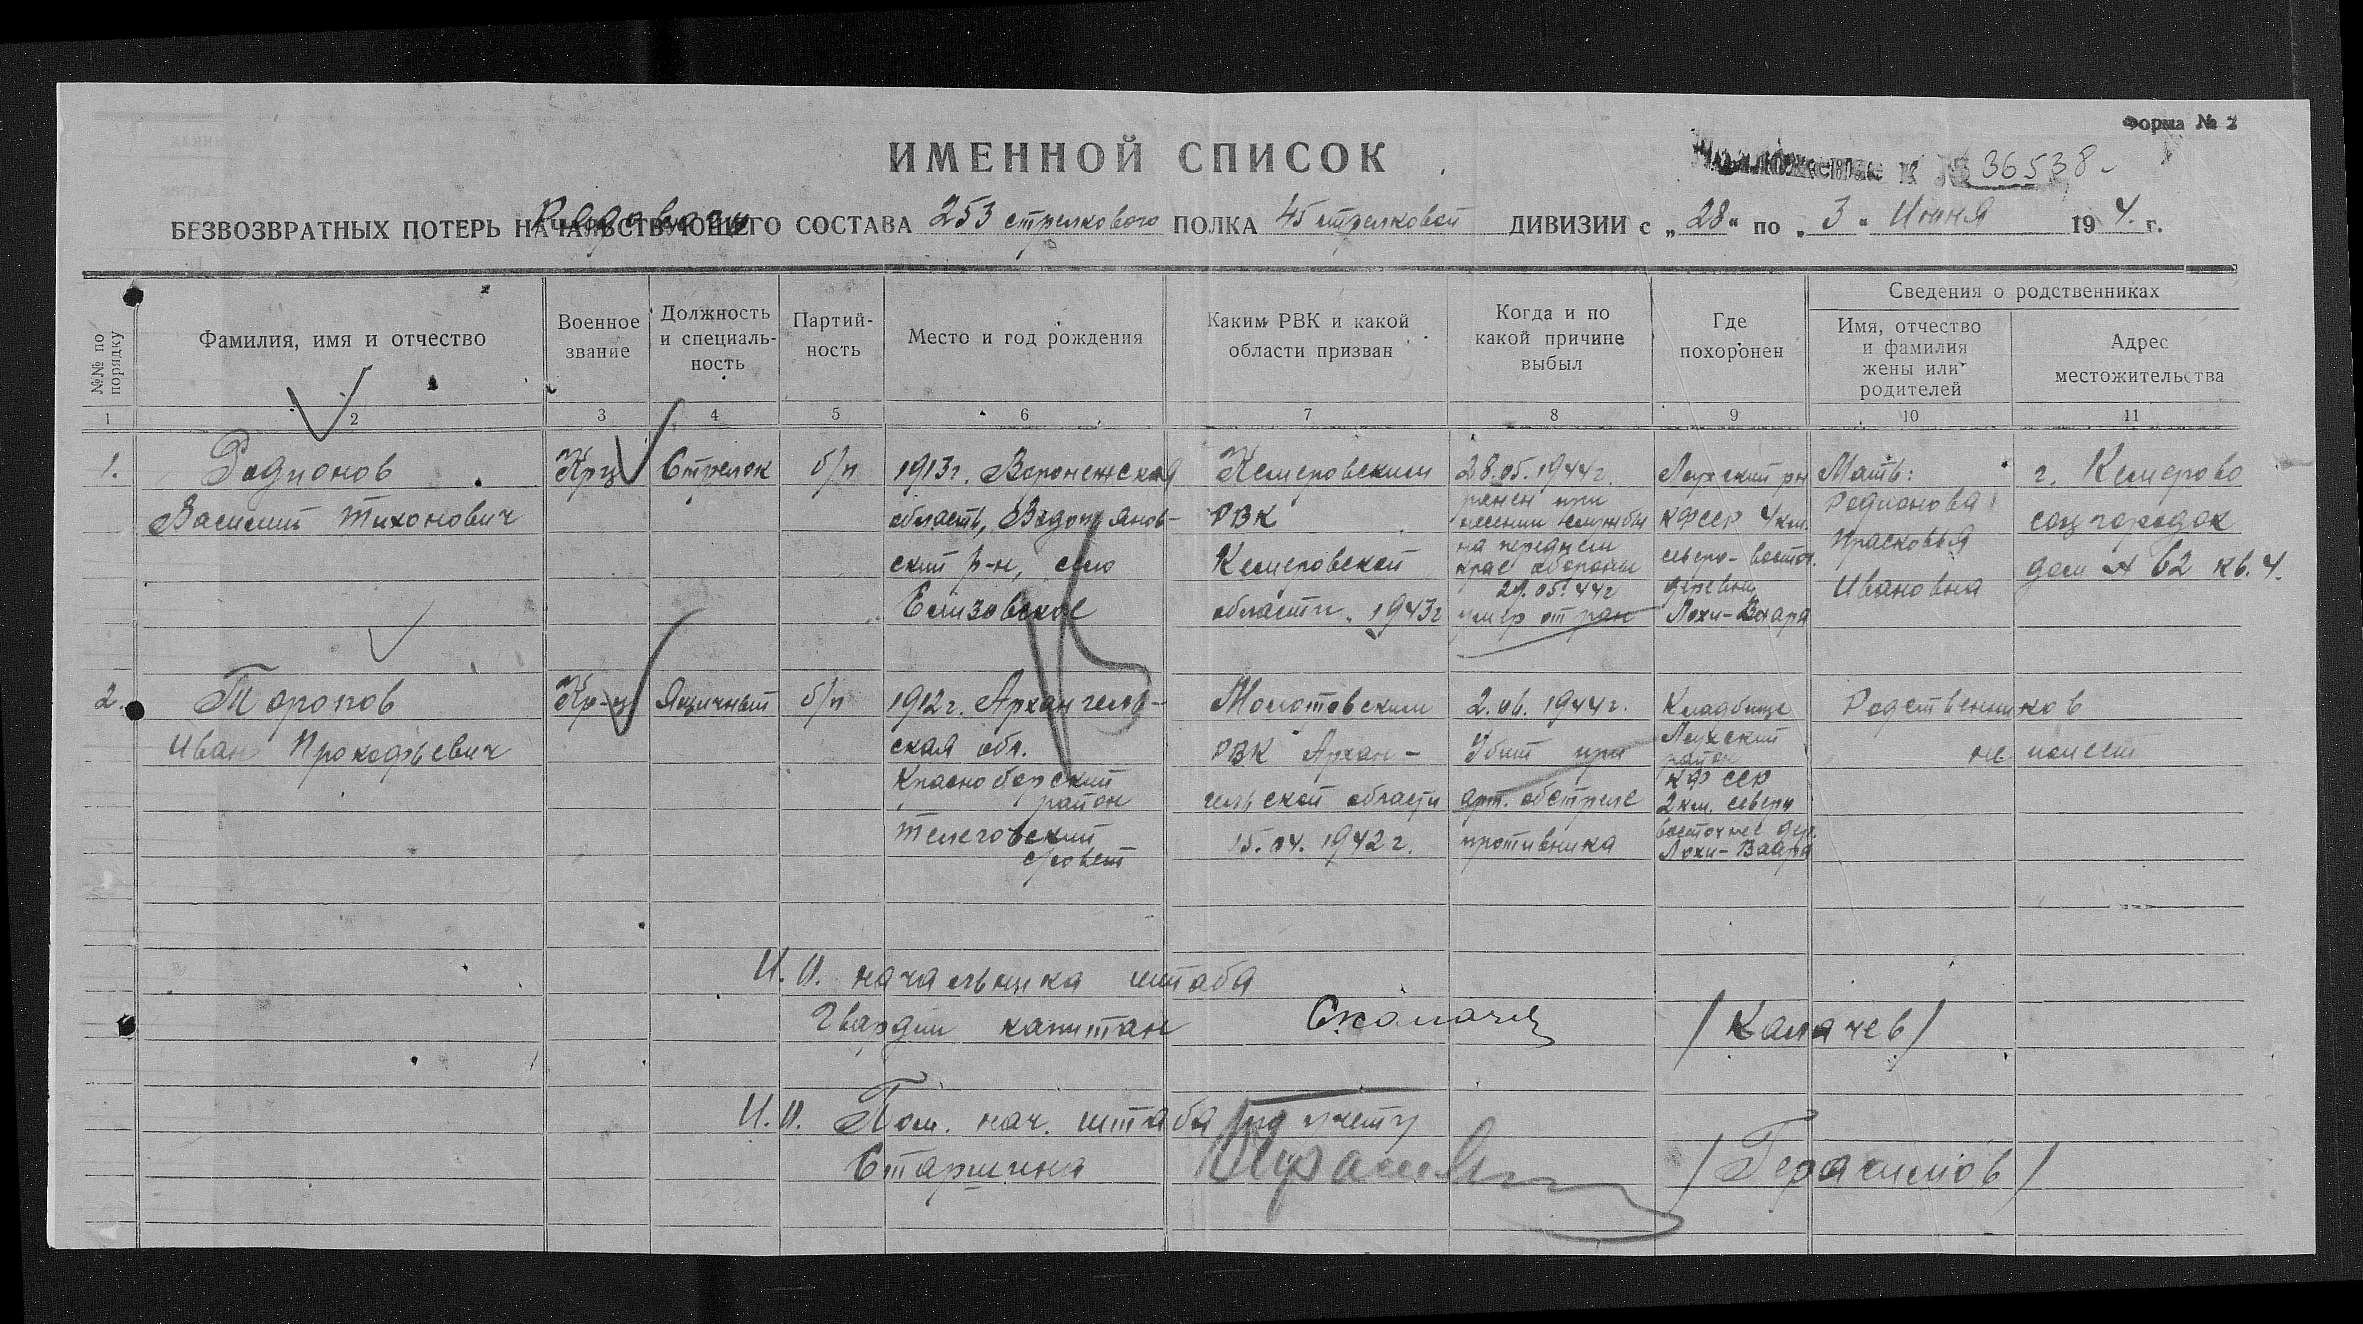 Форма № 2
ИМЕННОЙ СПИСОК
Приложение к № 36538
БЕЗВОЗВРАТНЫХ ПОТЕРЬ НАЧАЛЬСТВУЮЩЕГО Рядового СОСТАВА 253 стрелкового ПОЛКА 45 стрелковой ДИВИЗИИ с „28“ по „3“ Июня 194 4. г.
№№ по порядку
Фамилия, имя и отчество
Военное
звание
Должность
и специаль-
ность
Партий-
ность
Место и год рождения
Каким РВК и какой
области призван
Когда и по
какой причине
выбыл
Где
похоронен
Сведения о родственниках
Имя, отчество
и фамилия
жены или
родителей
Адрес
местожительства
1 2 3 4 5 6 7 8 9 10 11
1.
Родионов
Василий Тихонович
Кр-ц
Стрелок
б/п
1913г. Воронежская
область, Водопьянов-
ский р-н, село
Елизовское
Кемеровским
РВК
Кемеровской
области. 1943г
28.05.1944г.
ранен при
несении службы
на переднем
крае обороны
29.05.44г
умер от ран
Лоухский рн
КФССР 4 км.
северо-восточ.
деревни
Лохи-Ваара
Мать:
Родионова
Прасковья
Ивановна
г. Кемерово
соцгородок
дом № 62 кв. 4.
2.
Торопов
Иван Прокофьевич
Кр-ц
Ящичный
б/п
1912г. Архангель-
ская обл.
Красноборский
район
Телеговский
с/совет
Молотовским
РВК Архан-
гельской области
15.04.1942г.
2.06.1944г.
Убит при
арт. обстреле
противника
Кладбище
Лоухский
район
КФССР
2 км. северо
восточнее дер.
Лохи-Ваара
Родственников
не имеет
И.О. начальника штаба
Гвардии капитан
/Калачев/
И.О. Пом. нач. штаба по учету
Старшина
/Герасимов/